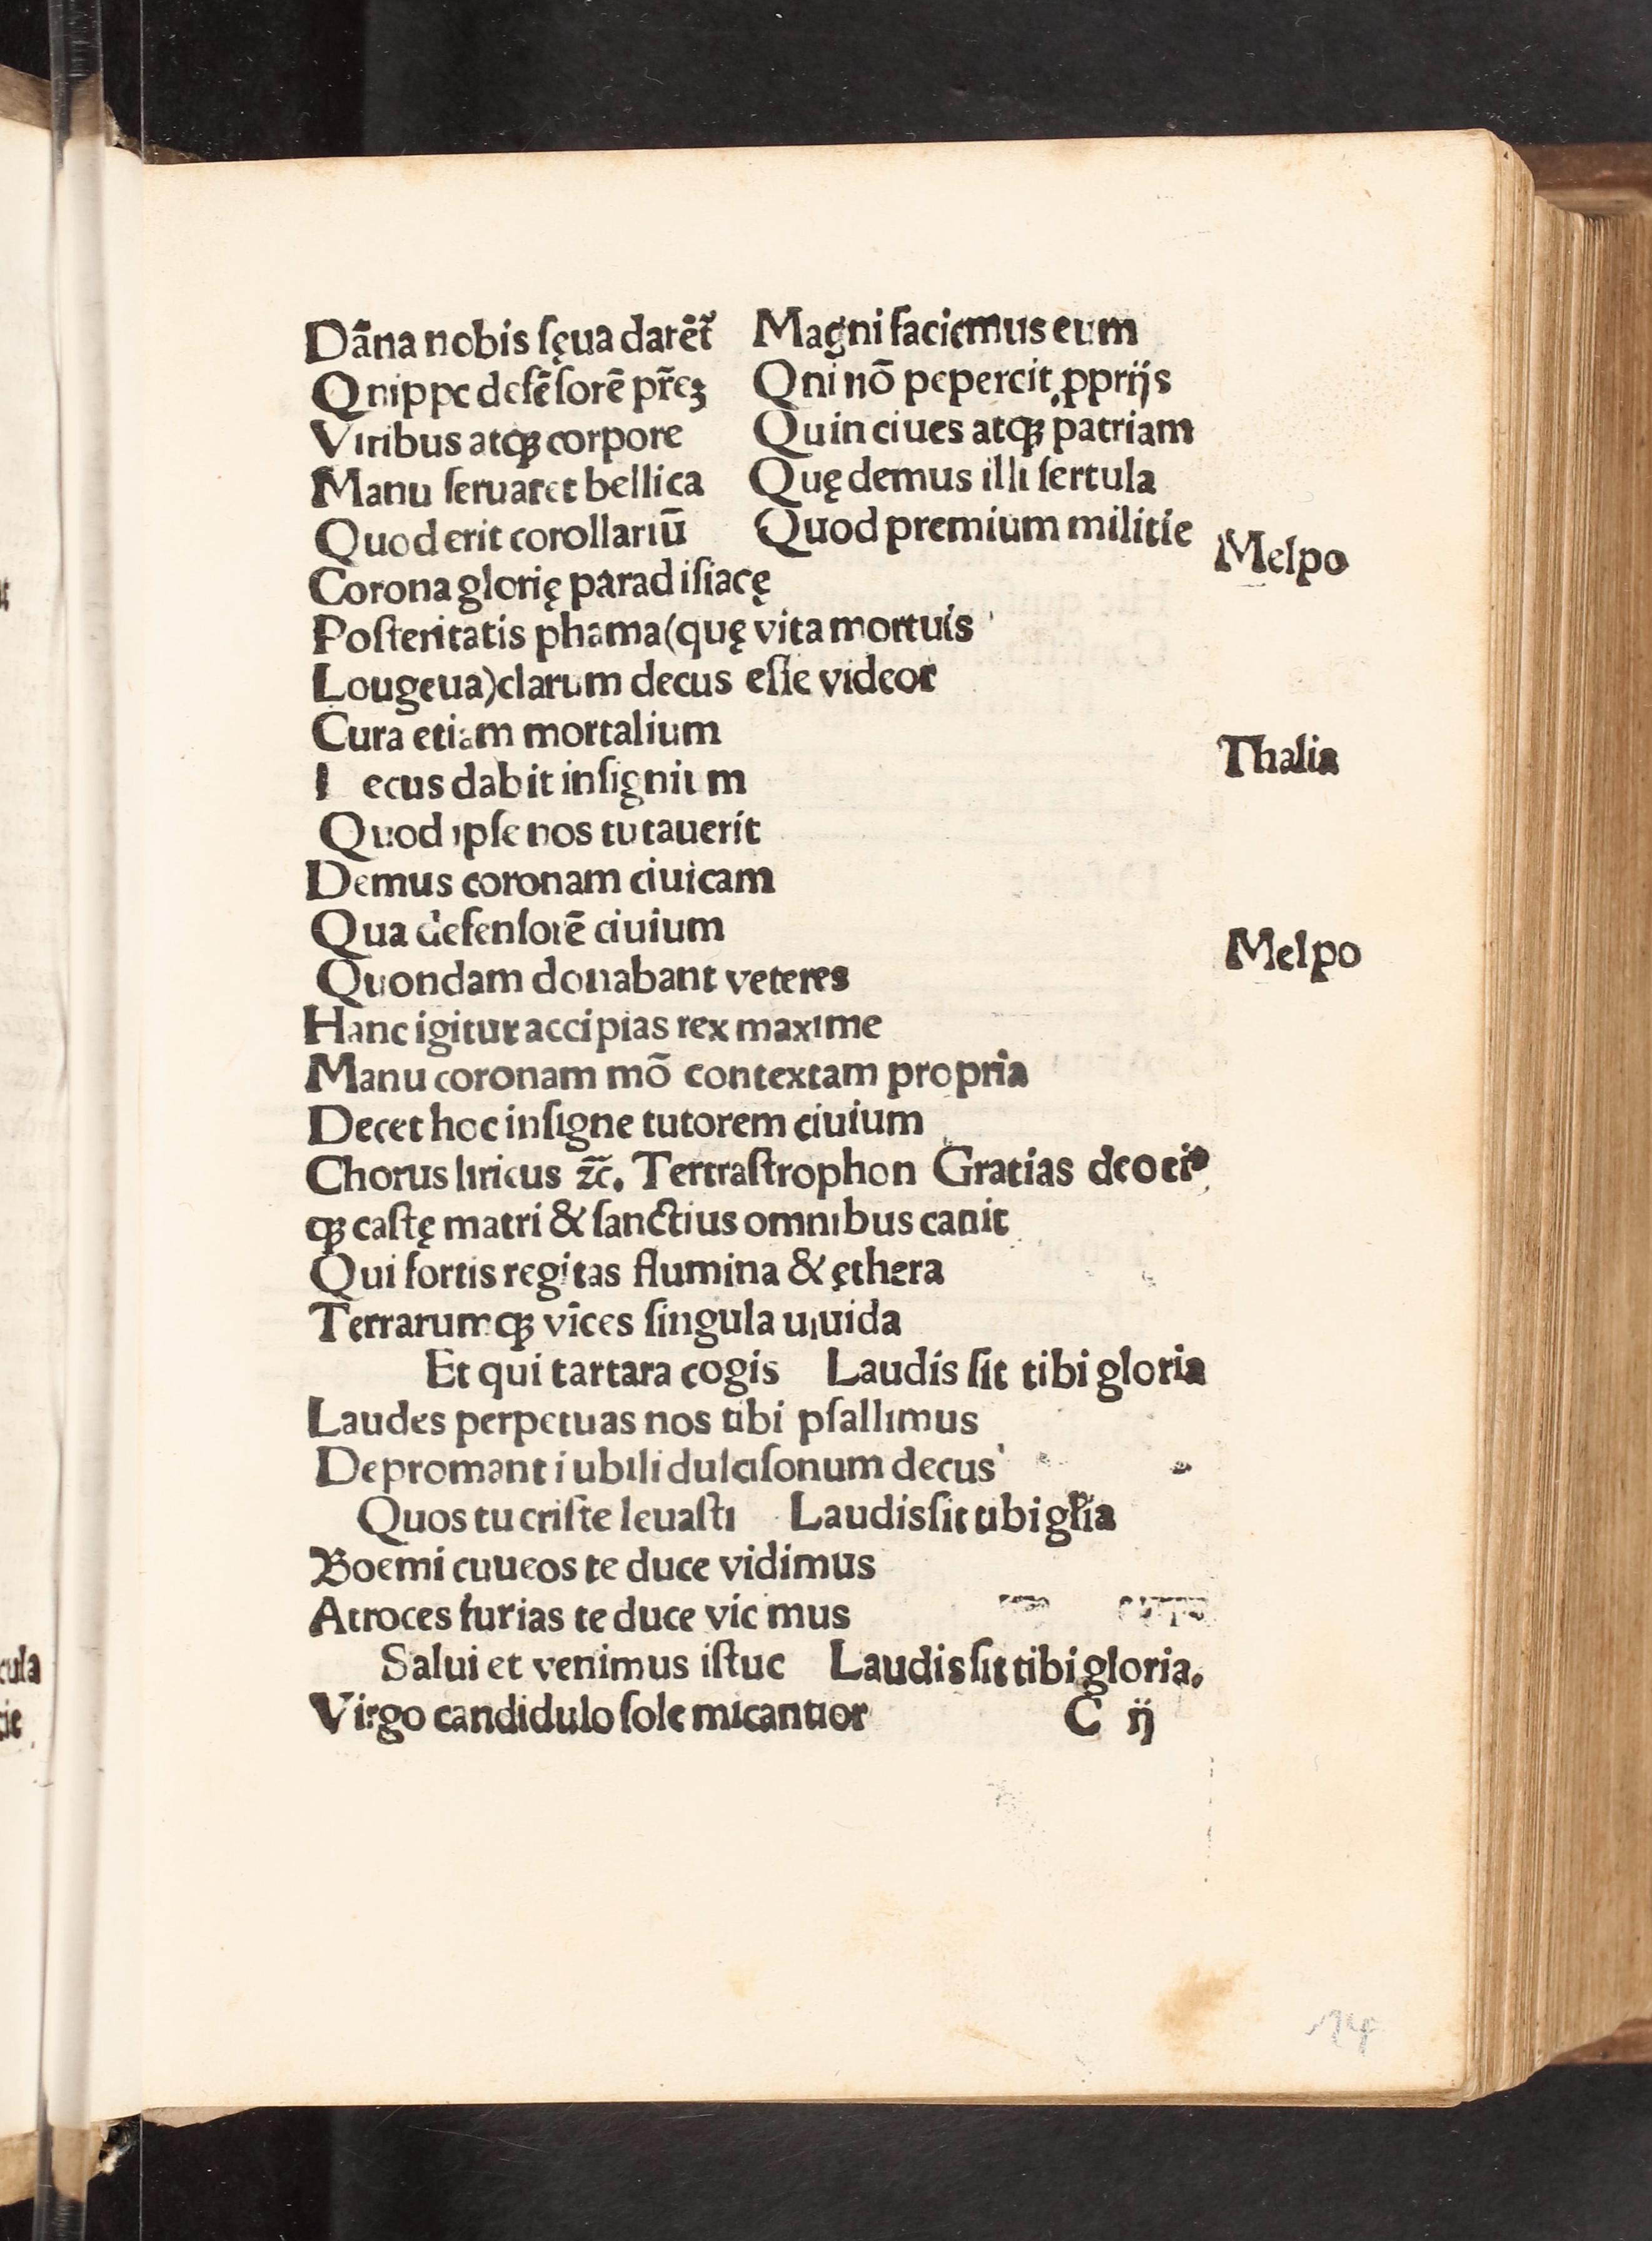 Dãna nobis ſęua darẽt᷑ Magni facicmus eum
Qnippc defẽſorẽ pr̃eꝫ Qni nõ pepercit ꝓprijs
Viribus atqꝫ corpore Quin ciues atqꝫ patriam
Manu ſeruaret bellica Quę demus illi ſertula
Quod erit corollariũ Quod premium militie
Melpo
Corona glorię paradiſiacę
Poſteritatis phama(quę vita mortuis
Lougeua)clarum decus eſſe videor
Cura etiam mortalium
Thalia
ecus dabit inſignium
Quod ipſe nos tutauerit
Demus coronam ciuicam
Qua defenſorẽ ciuium
Melpo
Quondam donabant veteres
Hanc igitur accipias rex maxime
Manu coronam mõ contextam propria
Decet hoc inſigne tutorem ciuium
Chorus liricus ⁊c̃. Tertraſtrophon Gratias deo eiꝰ
qꝫ caſtę matri & ſanctius omnibus canit
Qui fortis regitas flumina & ęthera
Terrarumqꝫ vices ſingula uiuida
Et qui tartara cogis Laudis ſit tibi gloria
Laudes perpetuas nos tibi pſallimus
Depromant iubili dulciſonum decus
Quos tu criſte leuaſti Laudis ſit tibi gl̃ia
Boemi cuueos te duce vidimus
Atroces furias te duce vic mus
Salui et venimus iſtuc Laudis ſit tibi gloria.
Virgo candidulo ſole micantior C ij
14